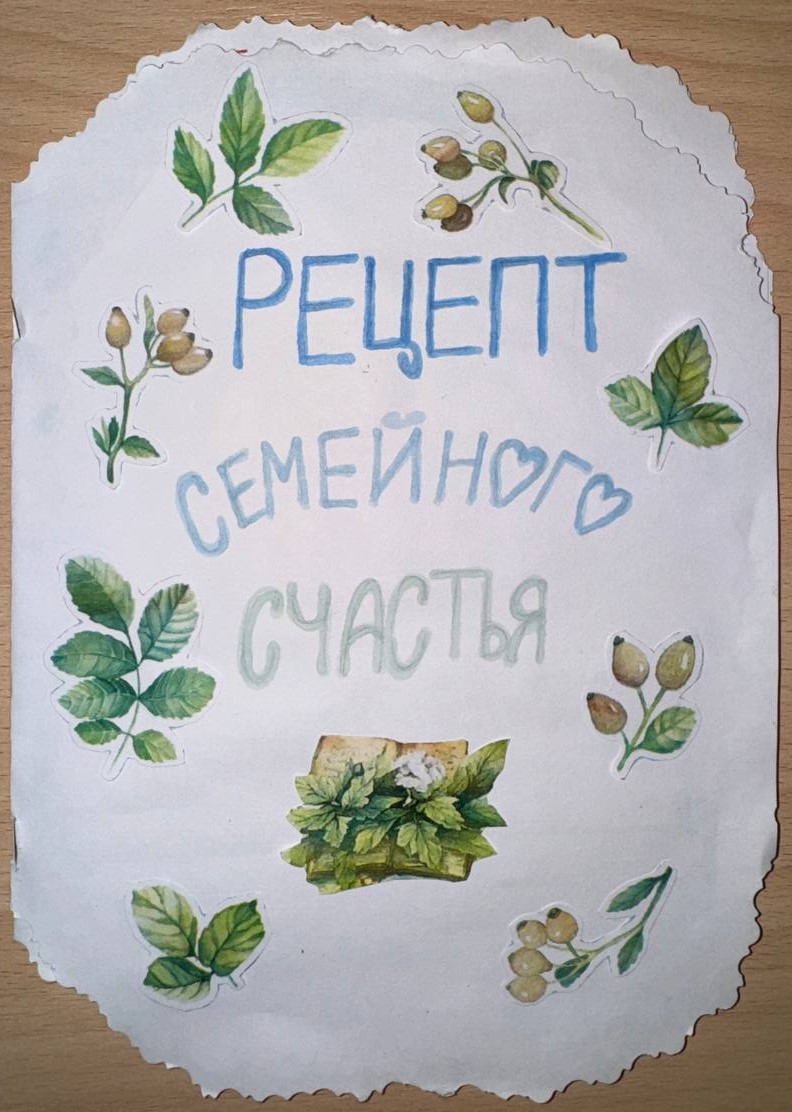 РЕЦЕПТ
СЕМЕЙНОГО
СЧАСТЬЯ